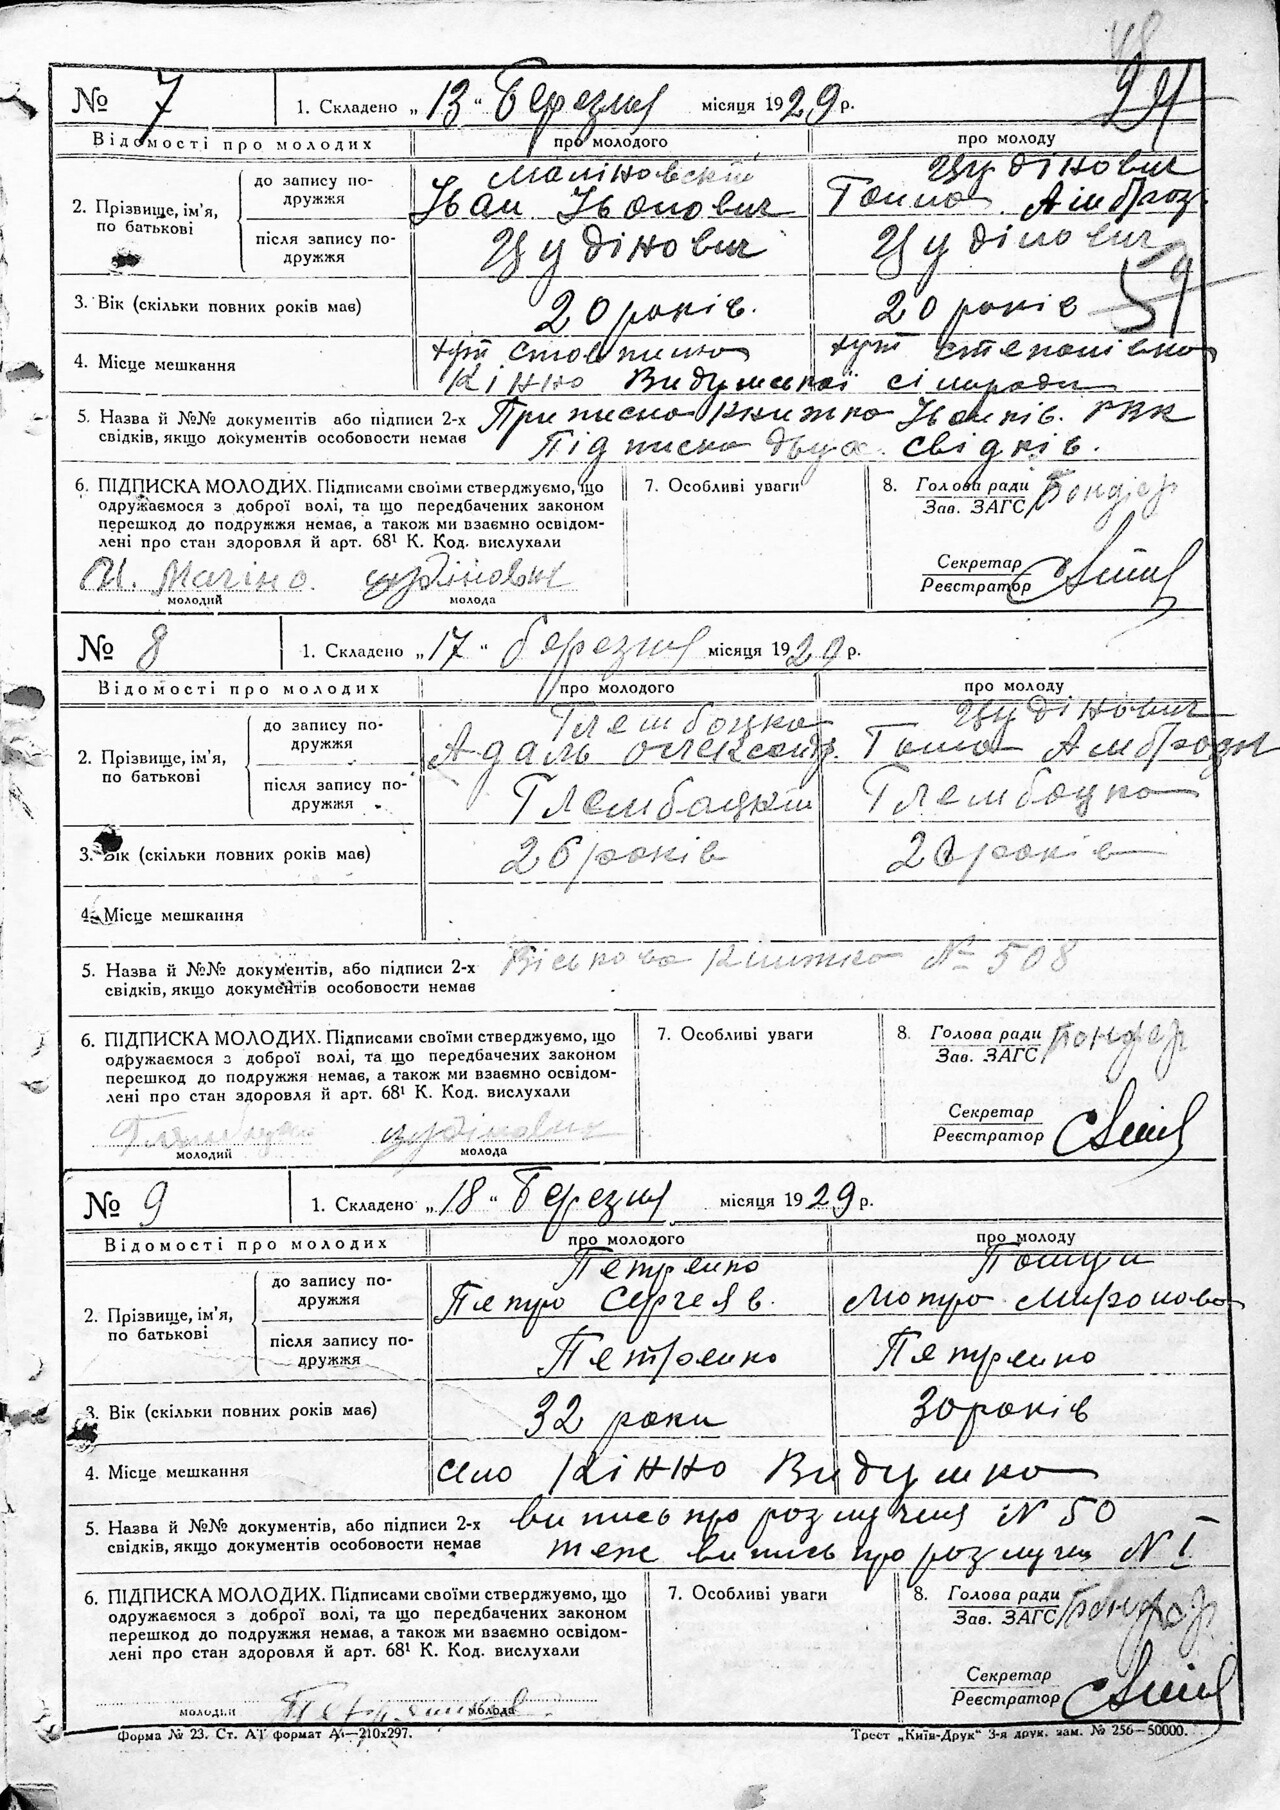 № 7
1. Складено „13“ Березня місяця 1929 р.
Відомості про молодих
про молодого
про молоду
2. Прізвище, ім'я, по батькові
до запису по-
дружжя
Маліновскій
Іван Іванович
Цудінович
Ганна Амброз.
після запису по-
дружжя
Цудінович
Цудінович
3. Вік (скільки повних років має)
20 років.
20 років
59
4. Місце мешкання
хут
хут Степанівка
Кінно Видумської сільради
5. Назва й №№ документів або підписи 2-х
свідків, якщо документів особовости немає
Приписна книжка Іванків. РВК
Підписка двух свідків.
6. ПІДПИСКА МОЛОДИХ. Підписами своїми стверджуємо, що
одружаємося з доброї волі, та що передбачених законом
перешкод до подружжя немає, а також ми взаємно освідом-
лені про стан здоровля й арт. 68¹ К. Код. вислухали
молодий
Цудінович
молода
7. Особливі уваги
8. Голова ради
Зав. ЗАГС
Секретар
Реєстратор
№ 8
1. Складено „17“ березня місяця 1929 р.
Відомості про молодих
про молодого
про молоду
2. Прізвище, ім'я,
по батькові
до запису по-
дружжя
Глембоцка
Адаль Олександр.
Цудінович
Ганна Амброзів
після запису по-
дружжя
Глембацкій
Глембоцка
3. Вік (скільки повних років має)
26 років
20 років
4. Місце мешкання
5. Назва й №№ документів, або підписи 2-х
свідків, якщо документів особовости немає
Віськова книжка № 508
6. ПІДПИСКА МОЛОДИХ. Підписами своїми стверджуємо, що
одружаємося з доброї волі, та що передбачених законом
перешкод до подружжя немає, а також ми взаємно освідом-
лені про стан здоровля й арт. 68¹ К. Код. вислухали
молодий
Цудінович
молода
7. Особливі уваги
8. Голова ради
Зав. ЗАГС
Секретар
Реєстратор
№ 9
1. Складено „18“ Березня місяця 1929 р.
Відомості про молодих
про молодого
про молоду
2. Прізвище, ім'я,
по батькові
до запису по-
дружжя
Петренко
Петро Сергеев.
Мотра Миронова
після запису по-
дружжя
Петренко
Петренко
3. Вік (скільки повних років має)
32 роки
30 років
4. Місце мешкання
село Кінно Видумка
5. Назва й №№ документів, або підписи 2-х
свідків, якщо документів особовости немає
випись про розлученя N 50
теж випись про розлучен N I
6. ПІДПИСКА МОЛОДИХ. Підписами своїми стверджуємо, що
одружаємося з доброї волі, та що передбачених законом
перешкод до подружжя немає, а також ми взаємно освідом-
лені про стан здоровля й арт. 68¹ К. Код. вислухали
молодий
молода
7. Особливі уваги
8. Голова ради
Зав. ЗАГС
Секретар
Реєстратор
Форма № 23. Ст. А1 формат А4—210x297.
Трест „Київ-Друк“ 3-я друк. зам. № 256—50000.